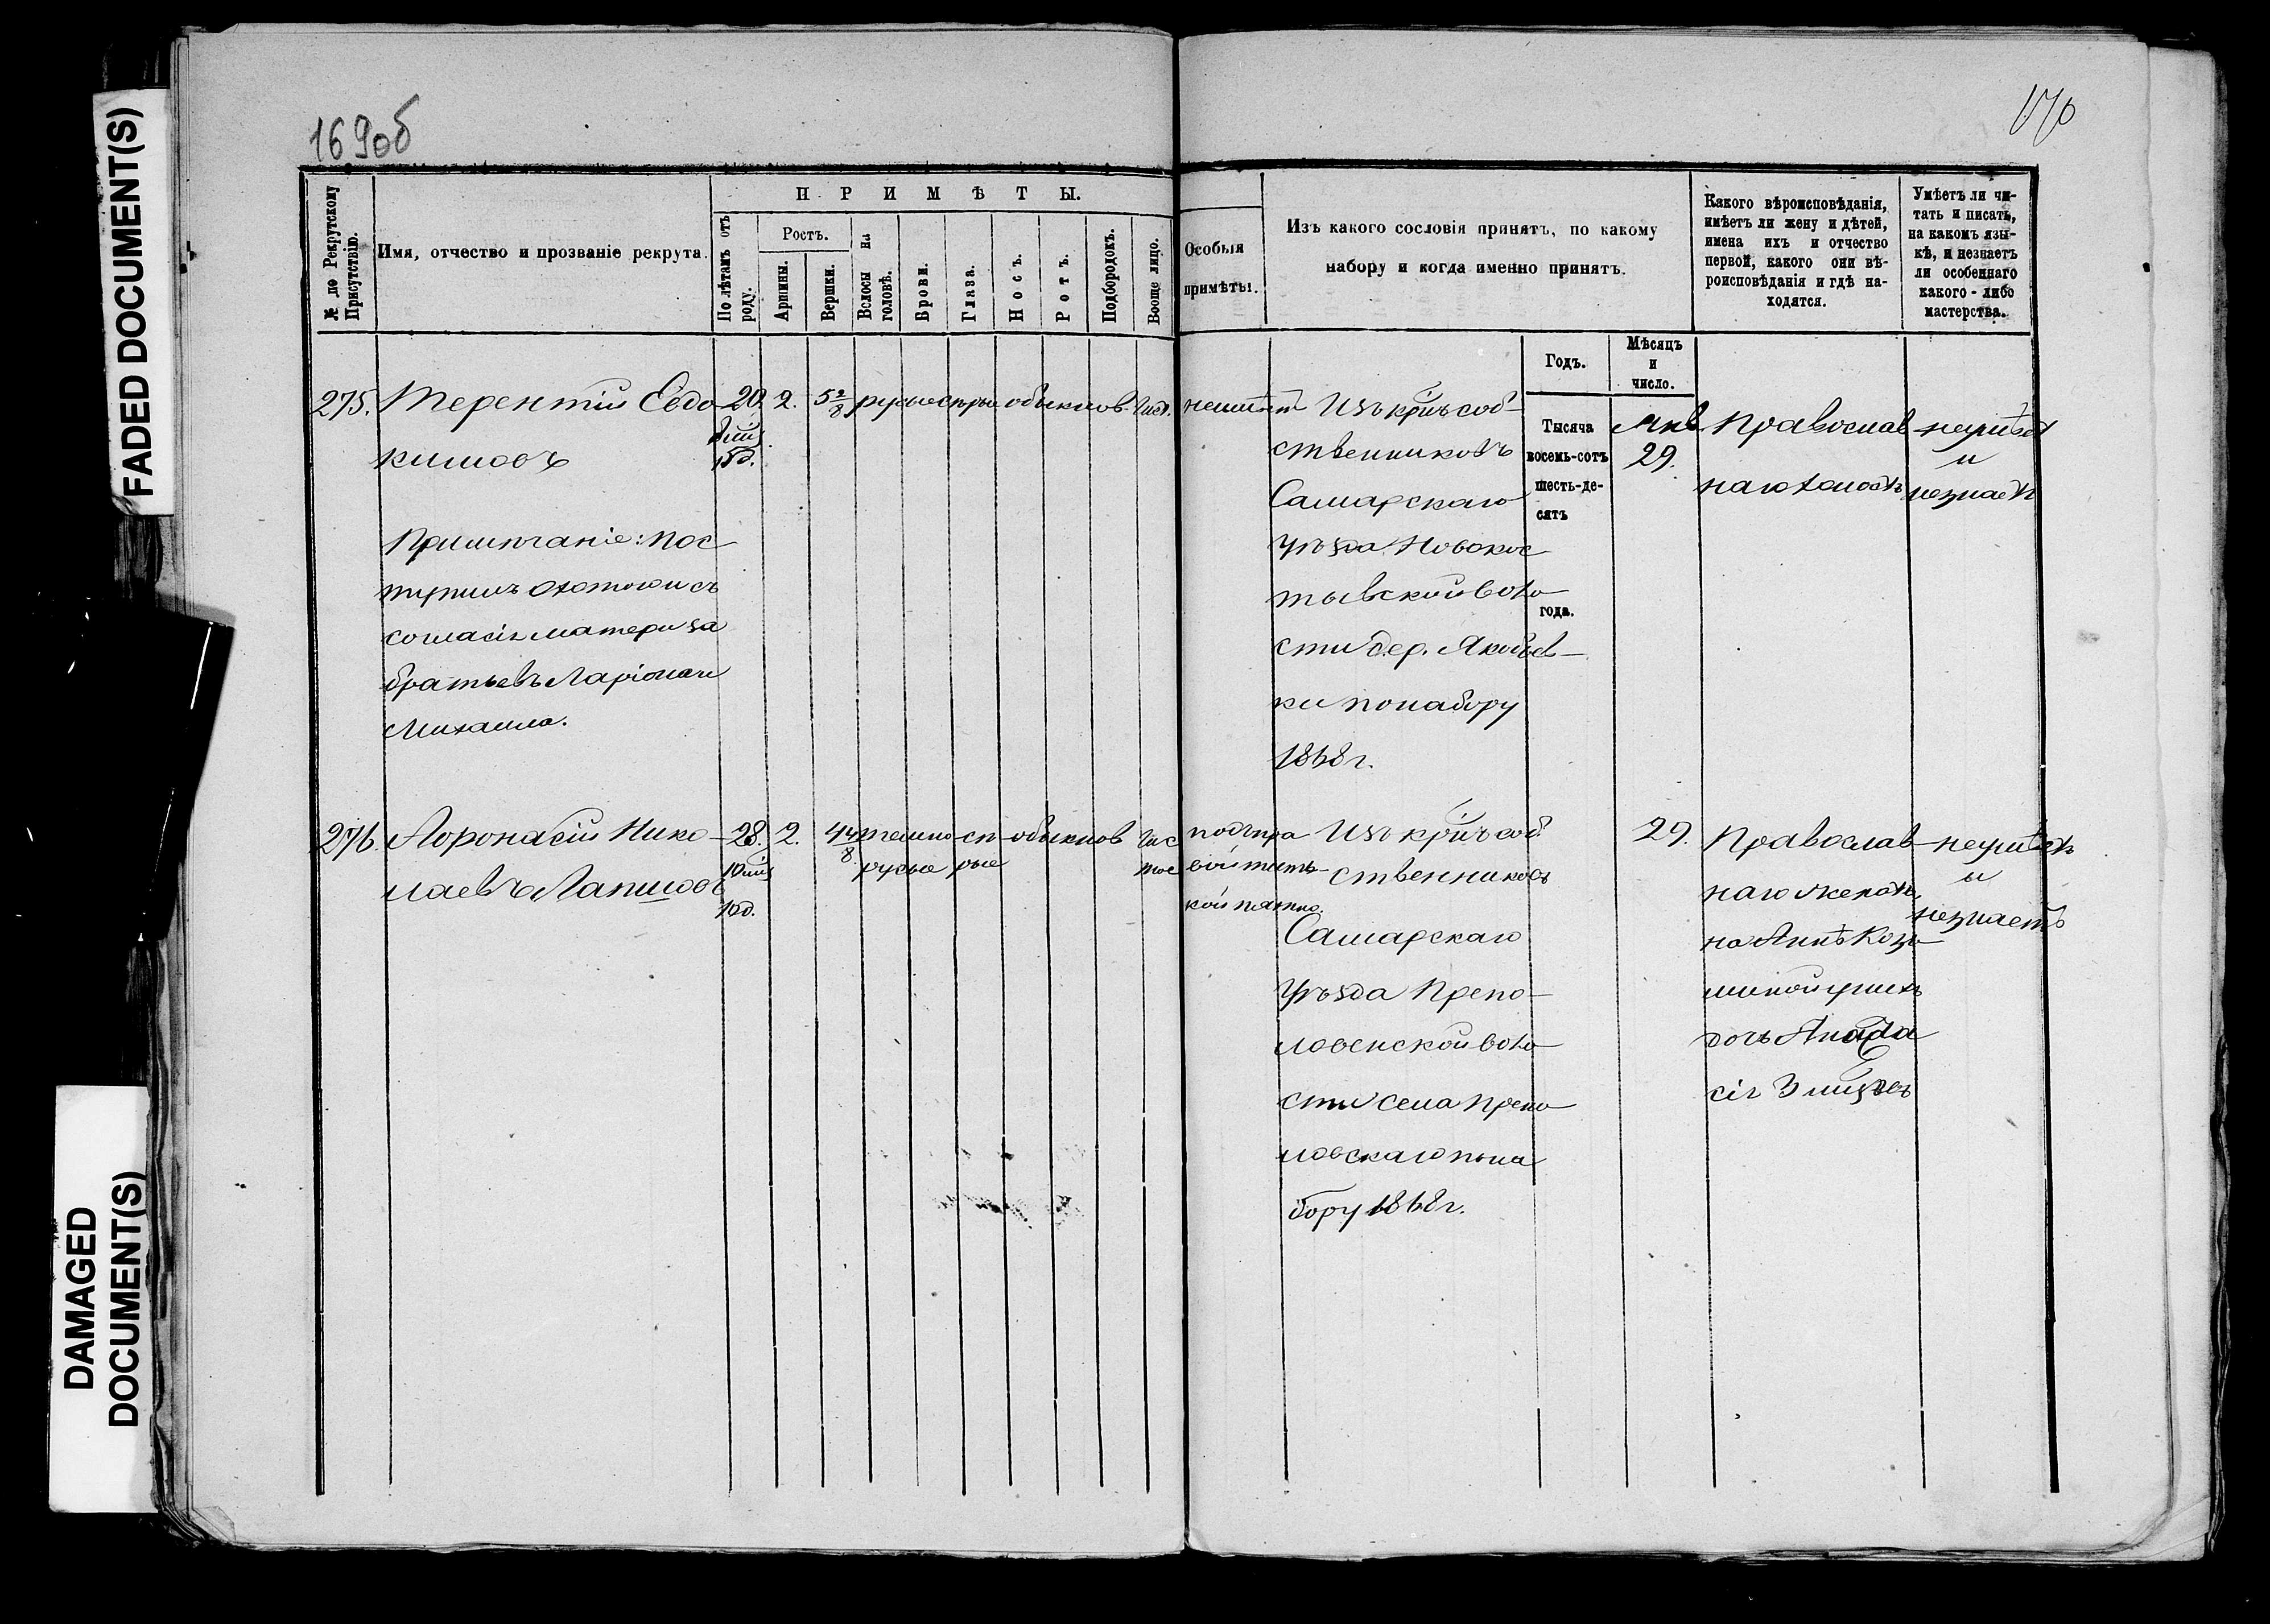 FADED DOCUMENT(S)
DAMAGED
DOCUMENT(S)
169об
170
№ по Рекрутскому Присутствію.
Имя, отчество и прозваніе рекрута.
ПРИМѢТЫ.
По лѣтамъ отъ роду.
Ростъ.
Аршины.
Вершки.
Волосы на головѣ.
Брови.
Глаза.
Носъ.
Ротъ.
Подбородокъ.
Вообще лицо.
Особыя
примѣты.
Изъ какого сословія принятъ, по какому
набору и когда именно принятъ.
Какого вѣроисповѣданія,
имѣетъ ли жену и дѣтей,
имена ихъ и отчество
первой, какого они вѣ-
роисповѣданія и гдѣ на-
ходятся.
Умѣетъ ли чи-
тать и писать,
на какомъ язы-
кѣ, и незнаетъ
ли особеннаго
какого-либо
мастерства.
Годъ.
Мѣсяцъ
и
число.
Тысяча
восемь-сотъ
шесть-де-
сятъ
года.
275.
Терентій Евдо-
кимовъ
Примѣчаніе: пос
тупилъ охотою и съ
согласія матери за
братьевъ Ларіона и
Михаила.
20.
15д.
2.
5 2/8
русые
сѣрые
обыкнов.
чист.
неимѣет
Изъ кр. соб-
ственниковъ
Самарскаго
уѣзда Новокос
тывской воло
сти дер. Якобьев-
ки по набору
1868 г.
Янв
29.
Православ
наго холостъ
неумѣет
и
незнаетъ
276.
Афонасій Нико-
лаевъ Лапшовъ
28.
10 м.
10д.
2.
4 4/8
темно
русые
сѣ
рые
обыкнов
чис
тое
подъ пра
вой тить
кой пятно.
Изъ кр. соб.
ственниковъ
Самарскаго
Уѣзда Препо-
ловенской воло
сти села Препо
ловскаго по на
бору 1868 г.
29.
Православ-
наго женатъ
на Аннѣ Козь
миной у нихъ
дочь Анаста
сія 3 мѣсяцевъ
неумѣетъ
и
незнаетъ